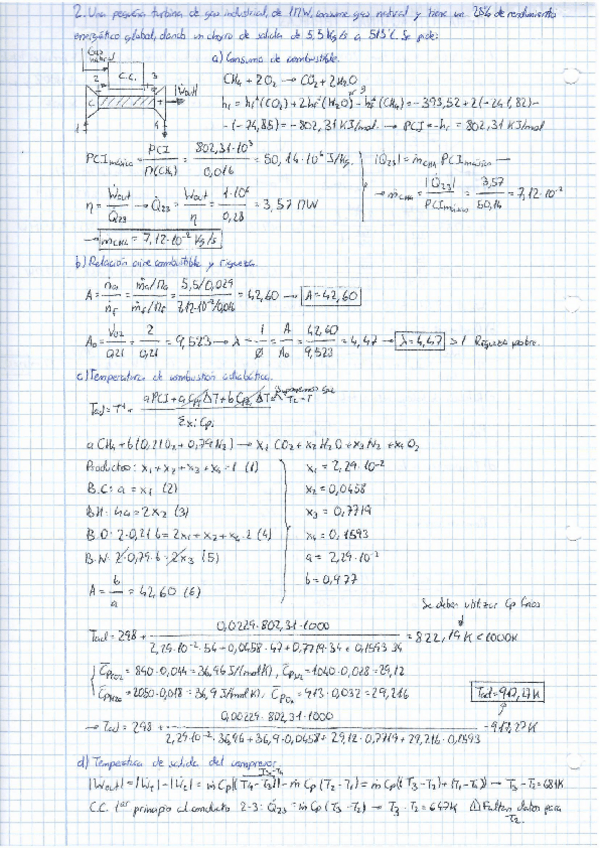 2. Una pequeña turbina de gas industrial, de 1MW, consume gas natural y tiene un 28% de rendimiento
energético global, dando un chorro de salida de 5,5 Kg/s a 515°C. Se pide:
a) Consumo de combustible.
Gas natural
C.C.
2 3
C T
Wout
1 4
CH4 + 2O2 → CO2 + 2H2O
hr = hf°(CO2) + 2hf°(H2O) - hf°(CH4) = -393,52 + 2(-241,82) -
-(-74,85) = -802,31 KJ/mol → PCI = -hr = 802,31 KJ/mol
PCImásico = PCI / M(CH4) = 802,31·10³ / 0,016 = 50,14·10⁶ J/Kg
|Q23| = mCH4 PCImásico →
→ mCH4 = |Q23| / PCImásico = 3,57 / 50,14 = 7,12·10⁻²
η = Wout / Q23 → Q23 = Wout / η = 1·10⁶ / 0,28 = 3,57 MW
→ mCH4 = 7,12·10⁻² Kg/s
b) Relación aire combustible y riqueza.
A = ṅa / ṅf = ṁa/Ma / ṁf/Mf = 5,5/0,029 / 7,12·10⁻²/0,016 = 42,60 → A = 42,60
A0 = VO2 / 0,21 = 2 / 0,21 = 9,523 → λ = 1 / Ø = A / A0 = 42,60 / 9,523 = 4,47 → λ = 4,47 > 1 Riqueza pobre.
c) Temperatura de combustión adiabática.
Suponemos que
Tad = T° + aPCI + a Cp ΔT + b Cp ΔT / Σxi Cpi
aCH4 + b(0,21O2 + 0,79N2) → x1 CO2 + x2 H2O + x3 N2 + x4 O2
Productos: x1 + x2 + x3 + x4 = 1 (1)
B.C: a = x1 (2)
B.H: 4a = 2x2 (3)
B.O: 2·0,21b = 2x1 + x2 + x4·2 (4)
B.N: 2·0,79·b = 2x3 (5)
A = b / a = 42,60 (6)
x1 = 2,29·10⁻²
x2 = 0,0458
x3 = 0,7719
x4 = 0,1593
a = 2,29·10⁻²
b = 0,977
Se deben utilizar Cp fríos
Tad = 298 + 0,0229·802,31·1000 / 2,29·10⁻²·54 + 0,0458·47 + 0,7719·34 + 0,1593·34 = 822,19K < 1000K
CpCO2 = 840·0,044 = 36,96 J/(molK), CpN2 = 1040·0,028 = 29,12
CpH2O = 2050·0,018 = 36,9 J/(molK), CpO2 = 913·0,032 = 29,216
Tad = 917,27K
→ Tad = 298 + 0,00229·802,31·1000 / 2,29·10⁻²·36,96 + 36,9·0,0458 + 29,12·0,7719 + 29,216·0,1593 = 917,27K
d) Temperatura de salida del compresor.
|Wout| = |Wt| - |Wc| = ṁ Cp|(T4 - T3)| - ṁ Cp (T2 - T1) = ṁ Cp((T3 - T2) + (T1 - T4)) → T3 - T2 = 681K
C.C. 1er principio al conducto 2-3: Q23 = ṁ Cp (T3 - T2) → T3 - T2 = 647K
Faltan datos para
T2.